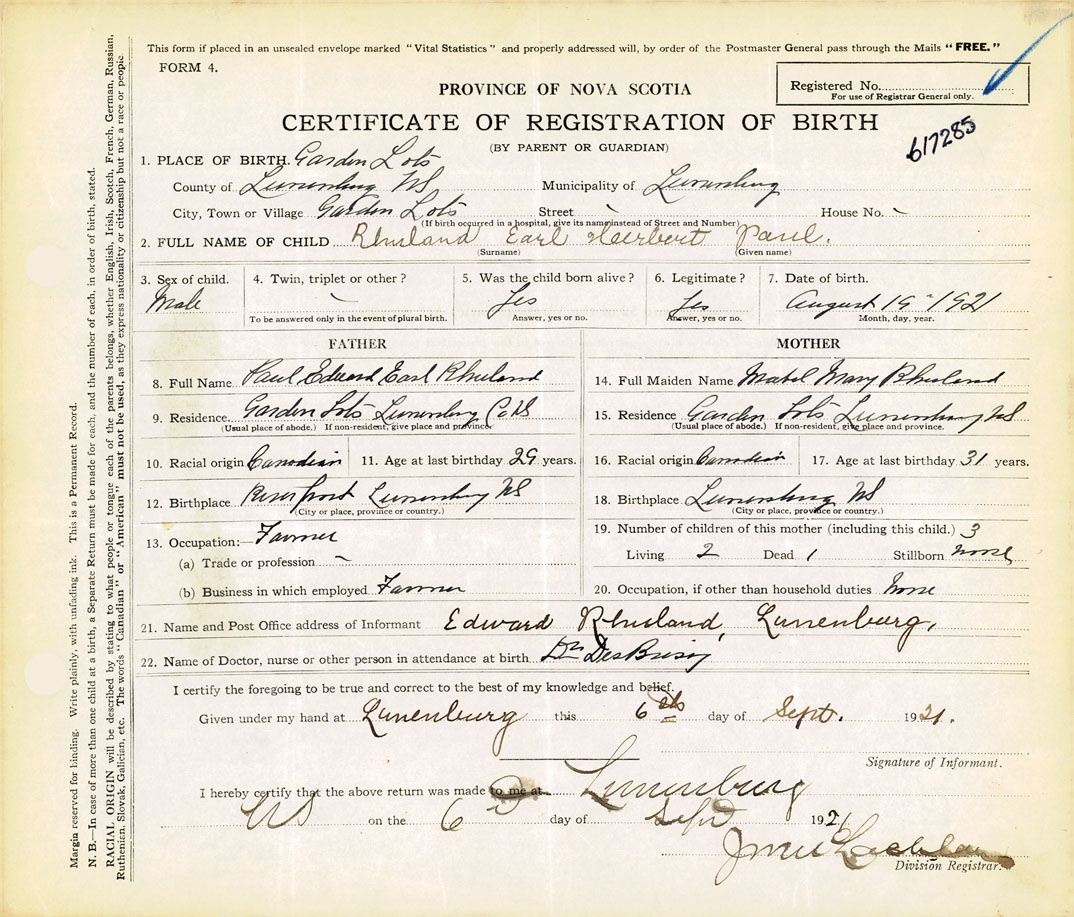 This form if placed in an unsealed envelope marked "Vital Statistics" and properly addressed will, by order of the Postmaster General pass through the Mails "FREE."
FORM 4.
Registered No.
For use of Registrar General only.
617285
PROVINCE OF NOVA SCOTIA
CERTIFICATE OF REGISTRATION OF BIRTH
(BY PARENT OR GUARDIAN)
1. PLACE OF BIRTH. Garden Lots
County of Lunenburg NS Municipality of Lunenburg
City, Town or Village Garden Lots Street - House No. -
(If birth occurred in a hospital, give its name instead of Street and Number)
2. FULL NAME OF CHILD Rhuland Earl Heirbert Paul.
(Surname) (Given name)
3. Sex of child. 4. Twin, triplet or other? 5. Was the child born alive? 6. Legitimate? 7. Date of birth.
Male - Yes Yes August 19 1921
To be answered only in the event of plural birth. Answer, yes or no. Answer, yes or no. Month, day, year.
FATHER
8. Full Name Paul Edward Earl Rhuland
9. Residence Garden Lots Lunenburg Co NS
(Usual place of abode.) If non-resident, give place and province.
10. Racial origin Canadian 11. Age at last birthday 29 years.
12. Birthplace Lunenburg NS
(City or place, province or country.)
13. Occupation:— Farmer
(a) Trade or profession -
(b) Business in which employed Farmer
MOTHER
14. Full Maiden Name Mabel Mary Rhuland
15. Residence Garden Lots Lunenburg NS
(Usual place of abode.) If non-resident, give place and province.
16. Racial origin Canadian 17. Age at last birthday 31 years.
18. Birthplace Lunenburg NS
(City or place, province or country.)
19. Number of children of this mother (including this child.) 3
Living 2 Dead 1 Stillborn none
20. Occupation, if other than household duties None
21. Name and Post Office address of Informant Edward Rhuland, Lunenburg,
22. Name of Doctor, nurse or other person in attendance at birth Dr DesBrisay
I certify the foregoing to be true and correct to the best of my knowledge and belief.
Given under my hand at Lunenburg this 6th day of Sept. 1921.
Signature of Informant.
I hereby certify that the above return was made to me at Lunenburg
NS on the 6 day of Sept 1921
Division Registrar.
Margin reserved for binding. Write plainly, with unfading ink. This is a Permanent Record.
N. B.—In case of more than one child at a birth, a Separate Return must be made for each, and the number of each, in order of birth, stated.
RACIAL ORIGIN will be described by stating to what people or tongue each of the parents belongs, whether English, Irish, Scotch, French, German, Russian,
Ruthenian, Slovak, Galician, etc. The words "Canadian" or "American" must not be used, as they express nationality or citizenship but not a race or people